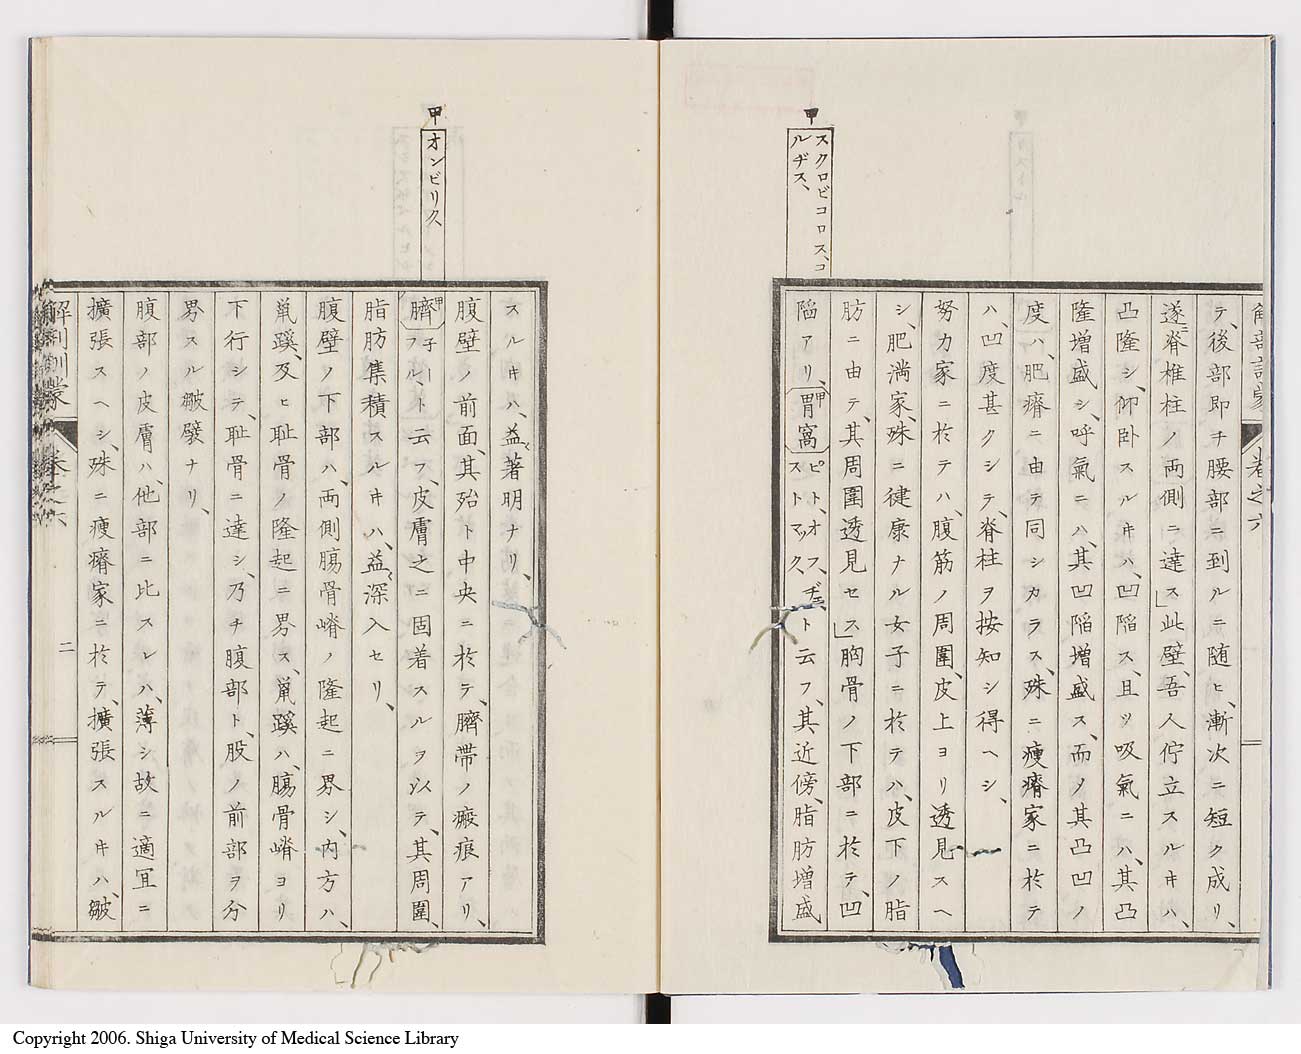 甲
スクロビコロス、コ
ルヂス、
解剖訓蒙 卷之六
テ、後部即チ腰部ニ到ルニ随ヒ、漸次ニ短ク成リ、
遂ニ脊椎柱ノ両側ニ達ス」此壁、吾人佇立スルヰハ、
凸隆シ、仰卧スルヰハ、凹陷ス、且ツ吸氣ニハ、其凸
隆増盛シ、呼氣ニハ、其凹陷増盛ス、而ノ其凸凹ノ
度ハ、肥瘠ニ由テ同シカラス、殊ニ瘦瘠家ニ於テ
ハ、凹度甚クシテ、脊柱ヲ按知シ得ヘシ、
努力家ニ於テハ、腹筋ノ周圍、皮上ヨリ透見スヘ
シ、肥満家、殊ニ健康ナル女子ニ於テハ、皮下ノ脂
肪ニ由テ、其周圍透見セス」胸骨ノ下部ニ於テ、凹
陷アリ、甲胃窩ピト、オフ、ヂェ、ストマック、ト云フ、其近傍、脂肪増盛
甲
オンビリク
スルヰハ、益〻著明ナリ、
腹壁ノ前面、其殆ト中央ニ於テ、臍帯ノ瘢痕アリ、
甲臍子ーフル、ト云フ、皮膚之ニ固着スルヲ以テ、其周圍、
脂肪集積スルヰハ、益〻深入セリ、
腹壁ノ下部ハ、両側膓骨嵴ノ隆起ニ界シ、内方ハ、
鼡蹊、及ヒ耻骨ノ隆起ニ界ス、鼡蹊ハ、膓骨嵴ヨリ
下行シテ、耻骨ニ達シ、乃チ腹部ト、股ノ前部ヲ分
界スル皺襞ナリ、
腹部ノ皮膚ハ、他部ニ比スレハ、薄シ故ニ適冝ニ
擴張スヘシ、殊ニ瘦瘠家ニ於テ、擴張スルヰハ、皺
解剖訓蒙 卷之六 二
Copyright 2006. Shiga University of Medical Science Library